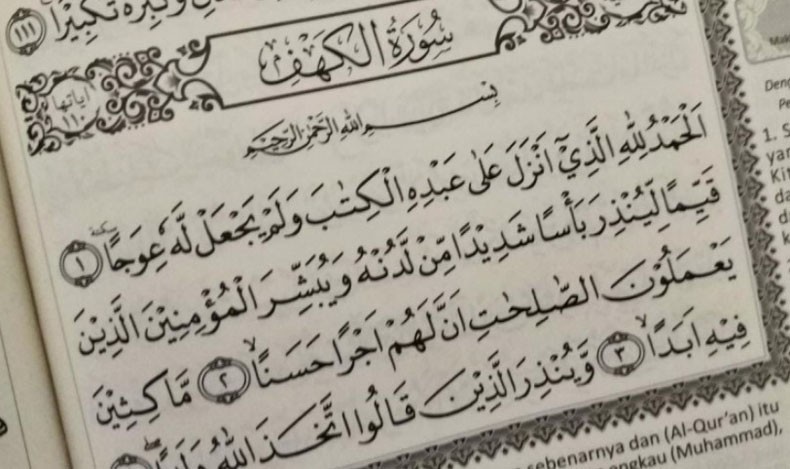 وَكَبِّرْهُ تَكْبِيْرًا ١١١
سُوْرَةُ الْكَهْفِ
اٰيَاتُهَا ١١٠
بِسْمِ اللّٰهِ الرَّحْمٰنِ الرَّحِيْمِ
اَلْحَمْدُ لِلّٰهِ الَّذِيْٓ اَنْزَلَ عَلٰى عَبْدِهِ الْكِتٰبَ وَلَمْ يَجْعَلْ لَّهٗ عِوَجًا ۜ ١
قَيِّمًا لِّيُنْذِرَ بَأْسًا شَدِيْدًا مِّنْ لَّدُنْهُ وَيُبَشِّرَ الْمُؤْمِنِيْنَ الَّذِيْنَ
يَعْمَلُوْنَ الصّٰلِحٰتِ اَنَّ لَهُمْ اَجْرًا حَسَنًاۙ ٢ مَّاكِثِيْنَ
فِيْهِ اَبَدًاۙ ٣ وَّيُنْذِرَ الَّذِيْنَ قَالُوا اتَّخَذَ اللّٰهُ وَلَدًا
Deng
Pe
1. S
yan
Kit
da
d
k
sebenarnya dan (Al-Qur'an) itu
engkau (Muhammad),